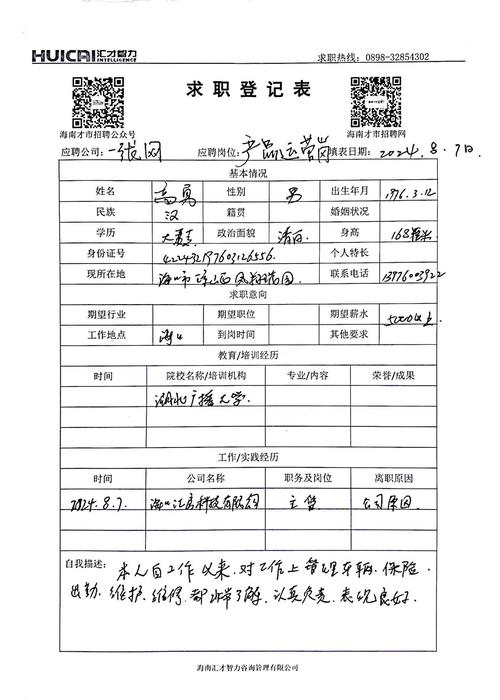 HUICAI汇才智力
INTELLIGENCE
求职热线：0898-32854302
求 职 登 记 表
海南才市招聘公众号
海南才市招聘网
应聘公司：一线网 应聘岗位：产品运营岗 填表日期：2024.8.7日
基本情况
姓名 高勇 性别 男 出生年月 1976.3.12
民族 汉 籍贯 婚姻状况
学历 大专 政治面貌 清白 身高 168厘米
身份证号 422432197603126556. 个人特长
现所在地 海口市琼山区凤翔花园 联系电话 13976003922
求职意向
期望行业 期望职位 期望薪水 5000以上
工作地点 海口 到岗时间 其他要求
教育/培训经历
时间 院校名称/培训机构 专业/内容 荣誉/成果
湖北广播大学
工作/实践经历
时间 公司名称 职务及岗位 离职原因
2024.8.7. 海口汇 科技有限公司 主管 公司原因
自我描述：本人自工作以来，对工作上管理车辆、保险
出勤、维护、维修、都非常了解，认真负责，表现良好.
海南汇才智力咨询管理有限公司